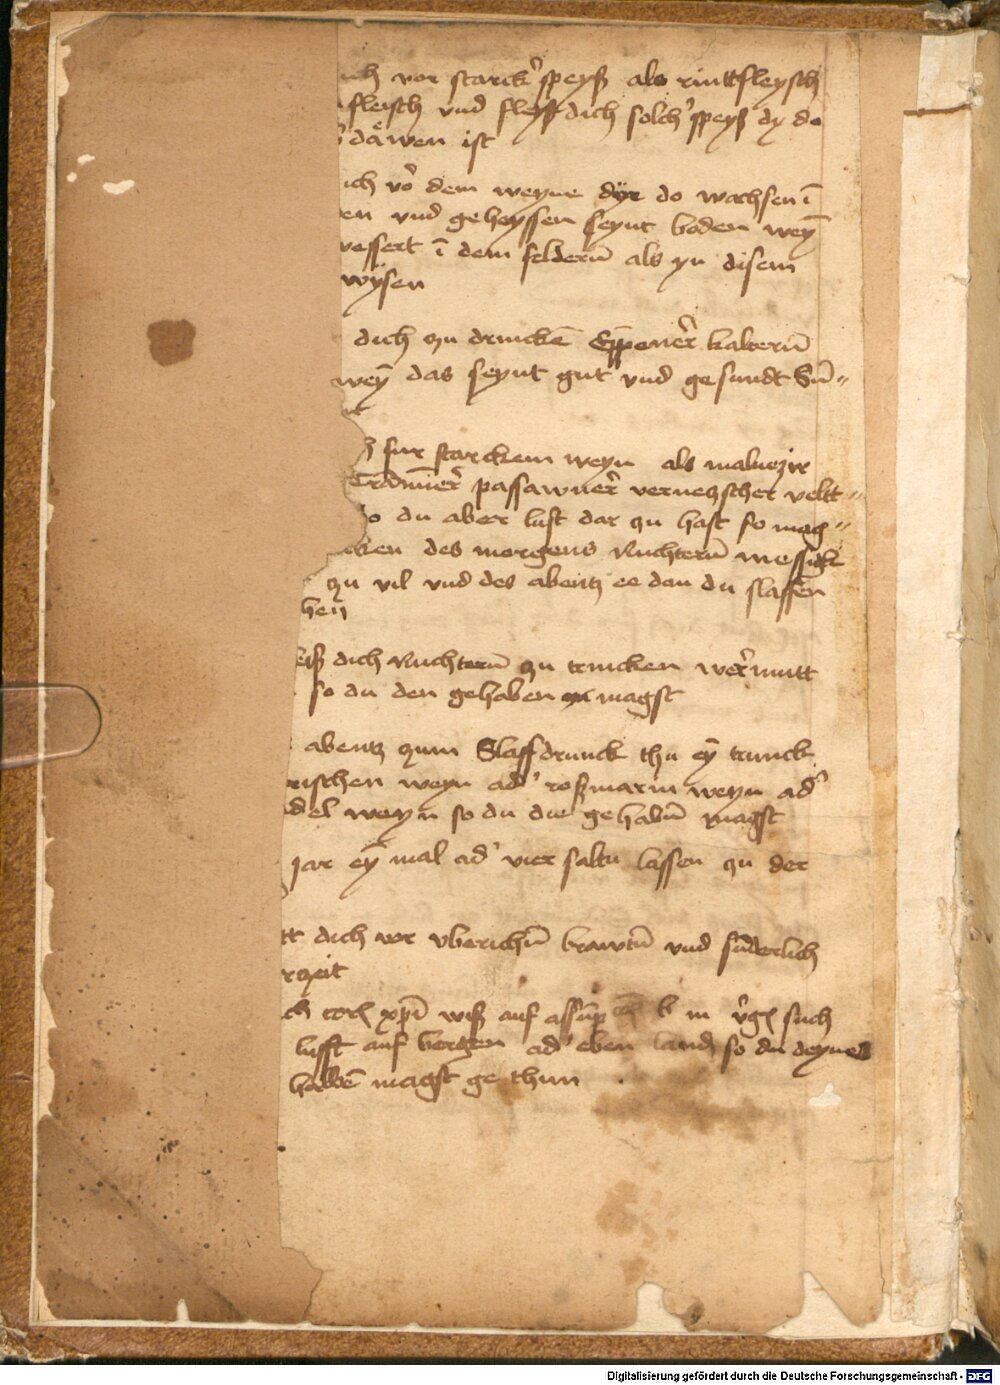 ich vor starck' speyß als rinttfleysch
fleisch vnd fleyß dich solch' speyß dy do
däwen ist
ich vō dem weyne dÿr do wachsen ī
en vnd geheyssen seynt boden weȳ
wessert ī dem felderū als yn disem
wÿsen
dich zu drincke͞ Eppener̄ kalterū
weȳ das seynt gut vnd gesundt Sū=
t
fur starckem weyn als maluezir
Tramiēr passawner̄ vernetzscher veltt=
so du aber lust dar zu hast so mag=
cken des morgens Nuchterū messigk
zu vil vnd des abentz ee dan du slaffen
hen
eiß dich Nuchterū zu trincken wer̄mutt
so du den gehaben magst
abentz zum Slaffdrunck thu eȳ trunck
rischen weyn ad' roßmarin weyn ad'
del weyn so du die gehabn̄ magst
jar eȳ mal ad' vier saltu lassen zu der
tt dich vor vberichū krawtū vnd sūderlich
rzeit
ch xp̄i wiß auf assūp b m v̄g such
lufft auf bergen ad' eben landt so du deynes
halbē magst ge thun
Digitalisierung gefördert durch die Deutsche Forschungsgemeinschaft - DFG